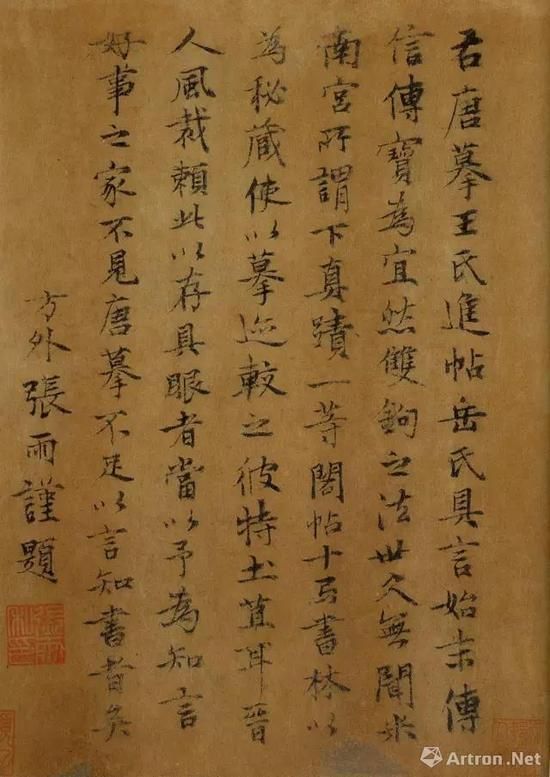 右唐摹王氏進帖岳氏具言始末傳
信傳寶為宜然雙鉤之法世久無聞米
南宮所謂下真蹟一等閣帖十弓書林以
為秘藏使以摹迹較之彼特土苴耳晉
人風裁賴此以存具眼者當以予為知言
好事之家不見唐摹不足以言知書者矣
方外張雨謹題
Artron.Net